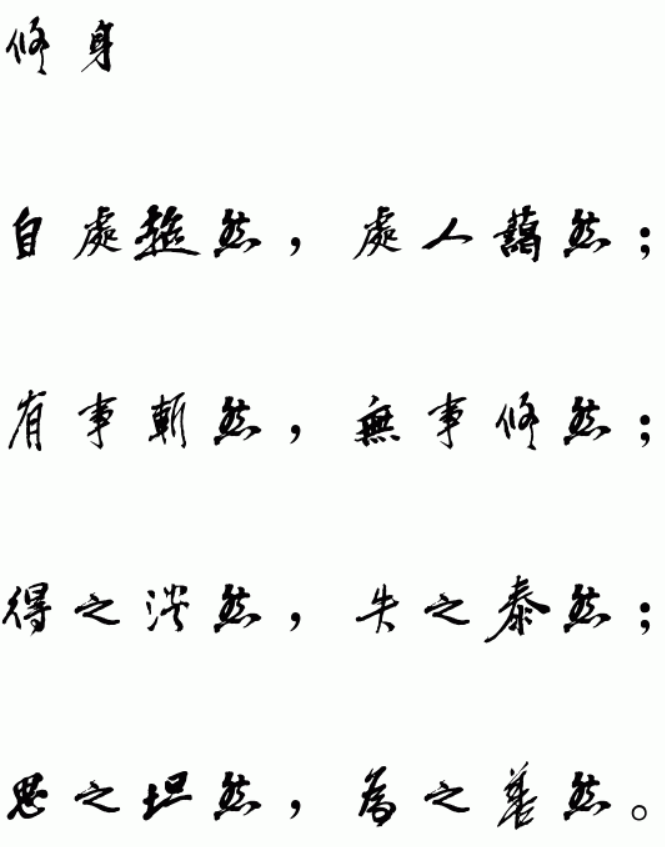 修身
自處超然，處人藹然；
有事斬然，無事修然；
得之淡然，失之泰然；
思之坦然，為之善然。